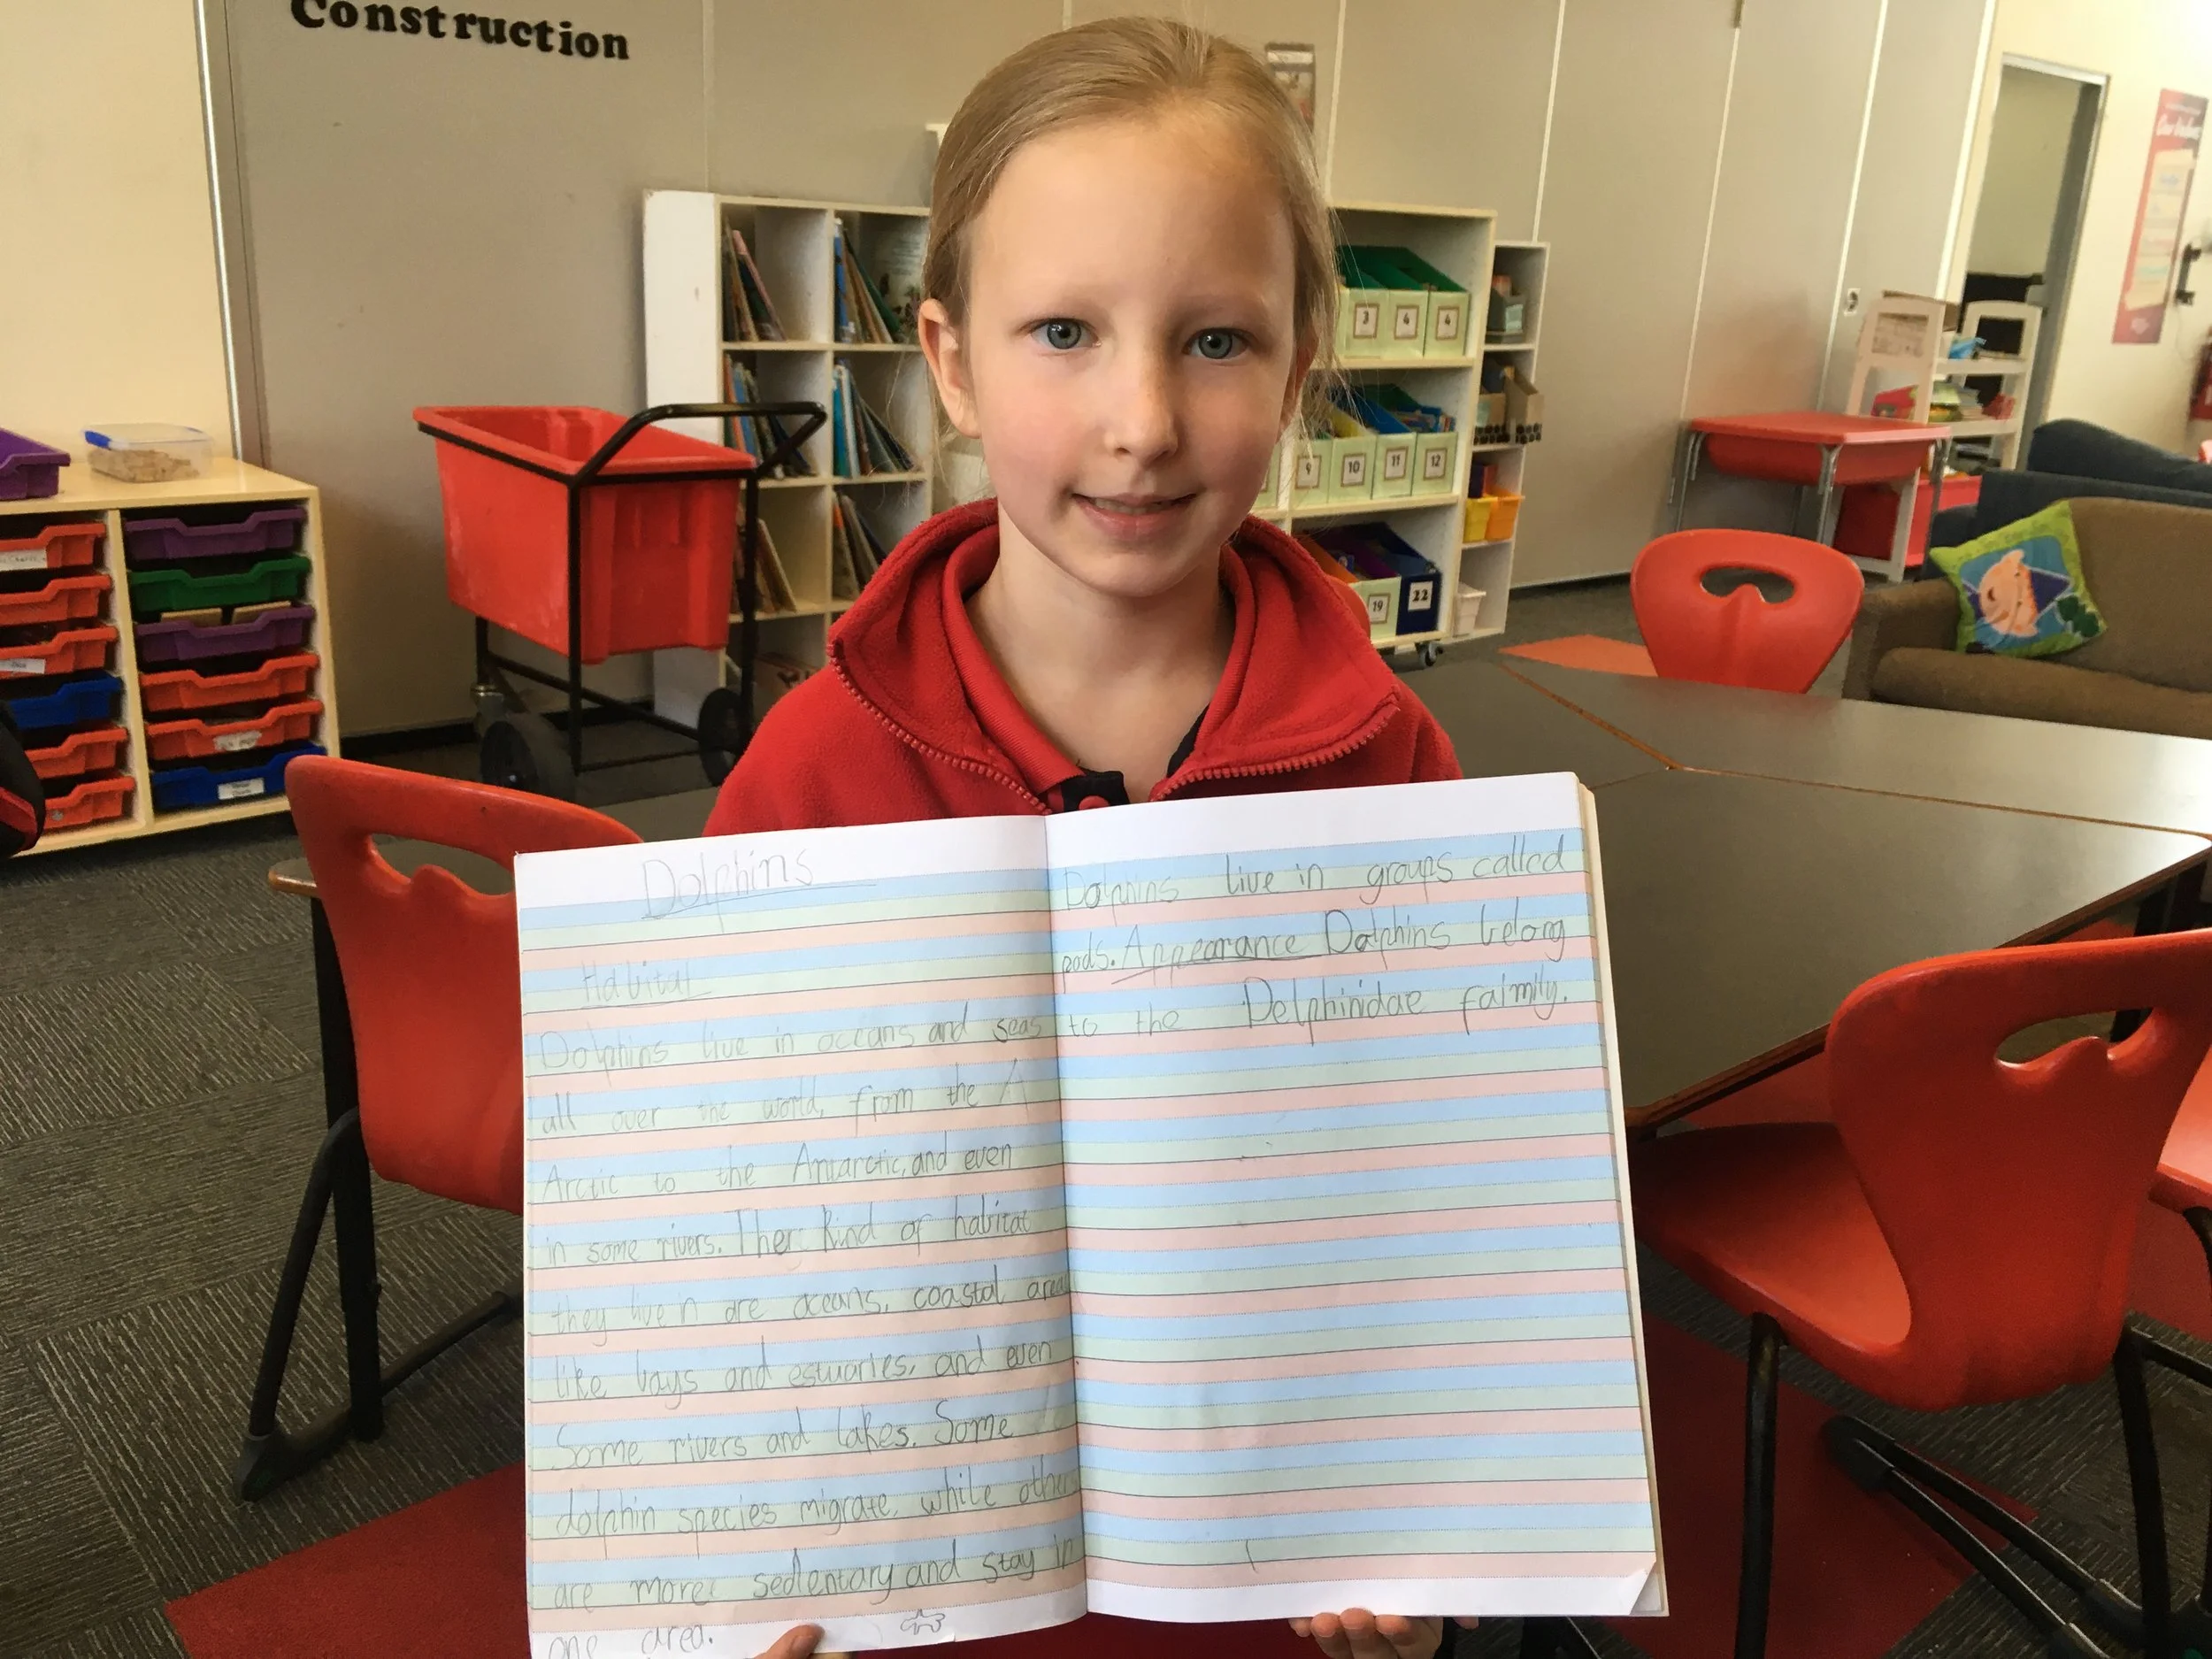 Construction
3
4
4
9
10
11
12
19
22
Dolphins
Habitat
Dolphins live in oceans and seas
all over the world, from the A
Arctic to the Antarctic, and even
in some rivers. Ther kind of habitat
they live in are oceans, coastal area
like bays and estuaries, and even
Some rivers and lakes. Some
dolphin species migrate, while other
are more sedentary and stay in
one area.
Dolphins live in groups called
pods. Appearance Dolphins belong
to the Delphinidae faimily.